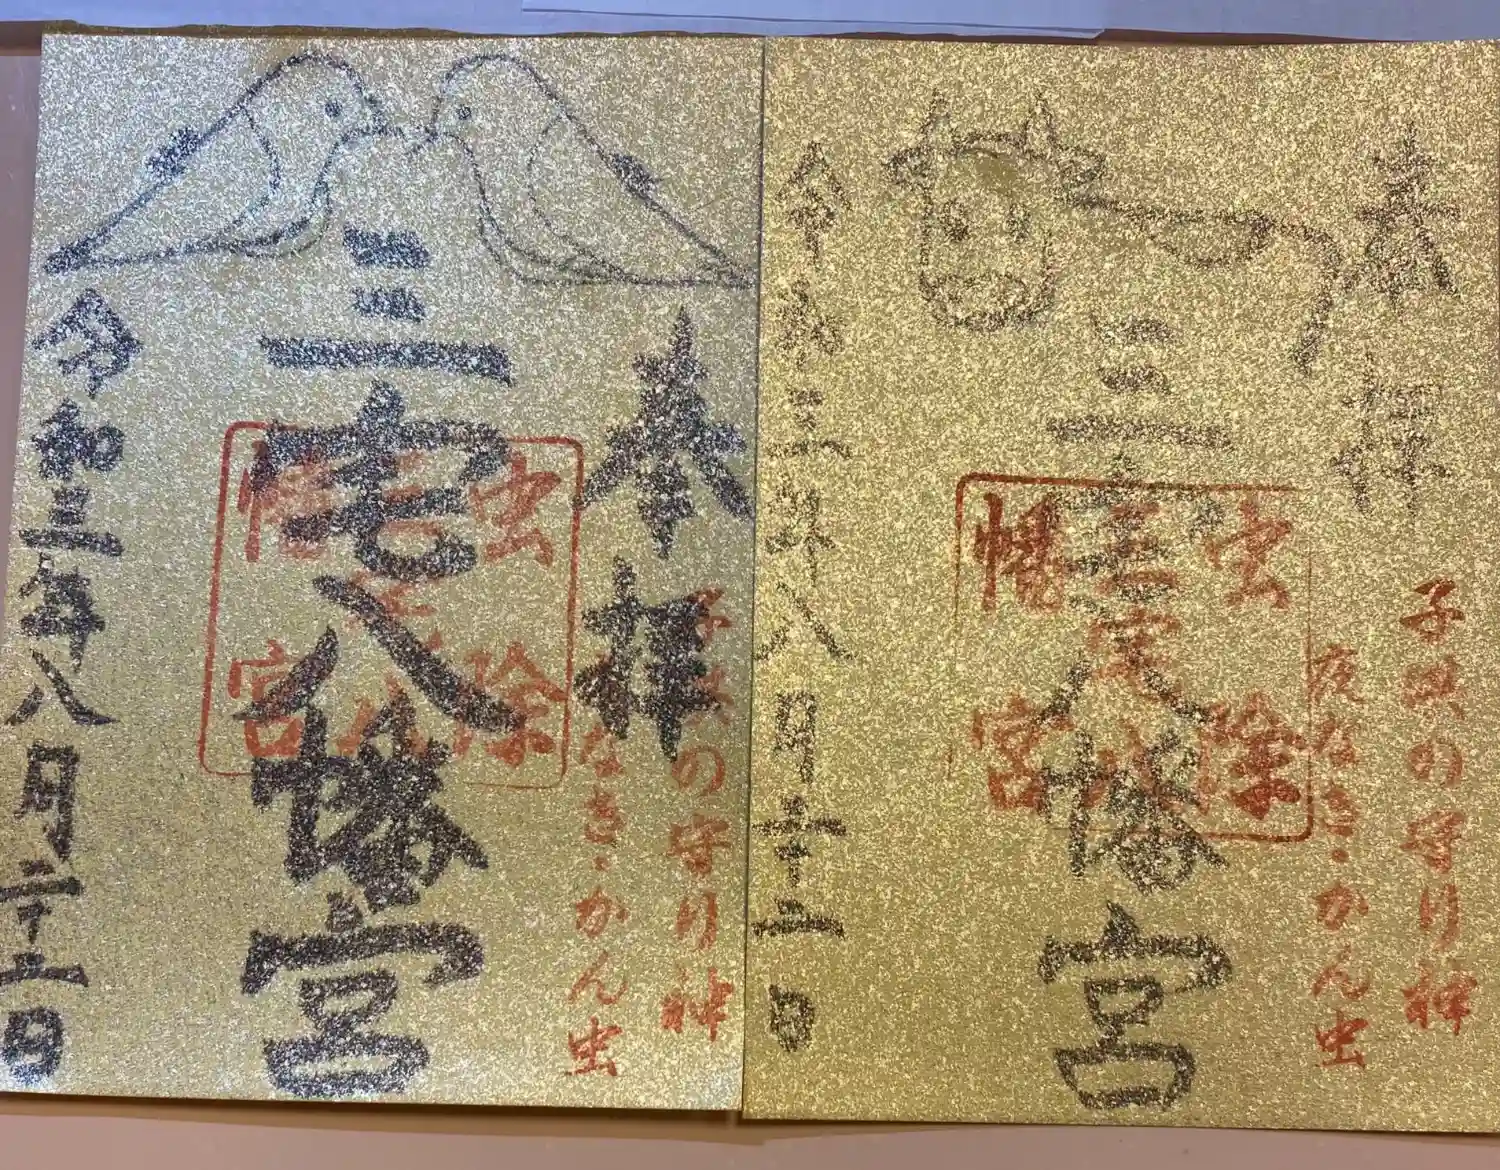 奉拝
子供の守り神
夜なき・かん虫
三宅八幡宮
虫除
三宅八
幡宮
令和三年八月二十二日
奉拝
子供の守り神
夜なき・かん虫
三宅八幡宮
虫除
三宅八
幡宮
令和三年八月二十二日